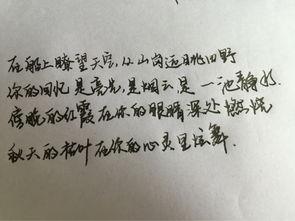 在船上瞭望天空,从山岗远眺田野
你的回忆是亮光,是烟云是一池静水
傍晚的红霞在你的眼睛深处燃烧
秋天的枯叶在你的心灵里炫舞.